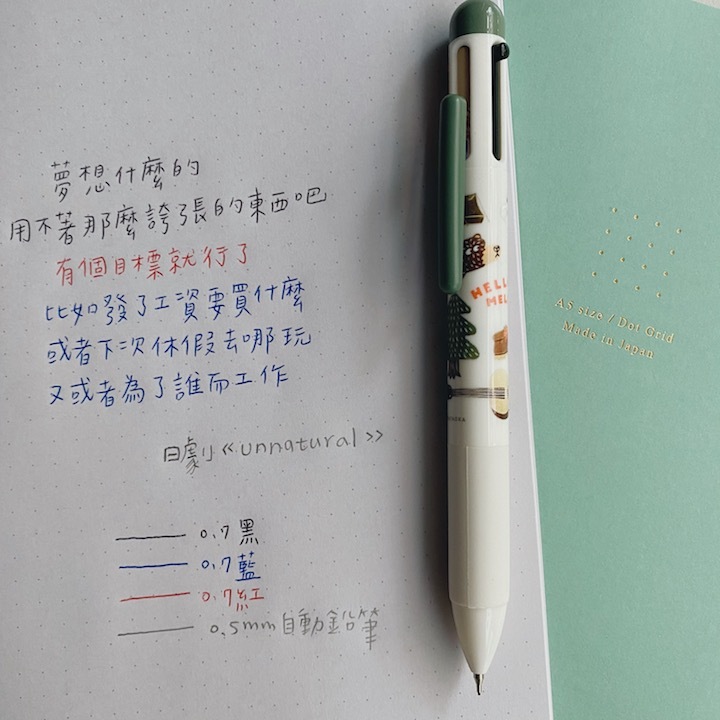 夢想什麼的
用不著那麼誇張的東西吧
有個目標就行了
比如發了工資要買什麼
或者下次休假去哪玩
又或者為了誰而工作
日劇《unnatural》
0.7黑
0.7藍
0.7紅
0.5mm自動鉛筆
HELL
MEL
A5 size / Dot Grid
Made in Japan